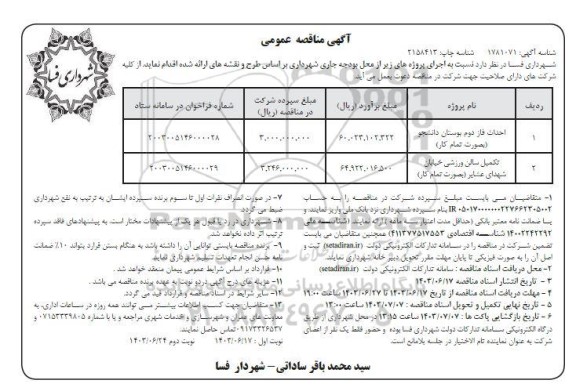 آگهی مناقصه عمومی
شناسه آگهی: ۱۷۸۱۰۷۱ شناسه چاپ: ۲۱۵۸۴۱۳
شهرداری فسا
شهرداری فسا در نظر دارد نسبت به اجرای پروژه های زیر از محل بودجه جاری شهرداری بر اساس طرح و نقشه های ارائه شده اقدام نماید. از کلیه
شرکت های دارای صلاحیت جهت شرکت در مناقصه دعوت بعمل می آید.
ردیف نام پروژه مبلغ برآورد (ریال) مبلغ سپرده شرکت در مناقصه (ریال) شماره فراخوان در سامانه ستاد
۱ احداث فاز دوم بوستان دانشجو (بصورت تمام کار) ۶۰,۰۲۳,۱۰۲,۳۲۲ ۳,۰۰۰,۰۰۰,۰۰۰ ۲۰۰۳۰۰۵۱۴۶۰۰۰۰۲۸
۲ تکمیل سالن ورزشی خیابان شهدای عشایر (بصورت تمام کار) ۶۴,۹۲۲,۰۱۶,۵۰۰ ۳,۲۴۶,۰۰۰,۰۰۰ ۲۰۰۳۰۰۵۱۴۶۰۰۰۰۲۹
۱- متقاضیان می بایست مبلغ سپرده شرکت در مناقصه را به حساب
بنام سپرده شهرداری نزد بانک ملی واریز نمایند و
یا ضمانت نامه معتبر بانکی (حداقل مدت اعتبار سه ماهه) ارائه نمایند. (شناسه ملی
۱۴۰۰۲۲۴۲۲۹۲ شناسه اقتصادی ۴۱۱۳۷۷۵۱۷۵۵۳) همچنین متقاضیان می بایست
تضمین شرکت در مناقصه را در سامانه تدارکات الکترونیکی دولت (setadiran.ir) ثبت و
اصل آن را به صورت فیزیکی تا پایان مهلت مقرر تحویل دبیر خانه شهرداری نمایند.
۲- محل دریافت اسناد مناقصه: سامانه تدارکات الکترونیکی دولت (setadiran.ir)
۳- تاریخ انتشار اسناد مناقصه ۱۴۰۳/۰۶/۱۷
۴- مهلت دریافت اسناد مناقصه از تاریخ ۱۴۰۳/۰۶/۱۷ تا ۱۴۰۳/۰۶/۲۷ ساعت ۱۹:۰۰
۵- تاریخ نهایی تکمیل و تحویل اسناد مناقصه: ۱۴۰۳/۰۷/۰۷ ساعت ۱۳:۰۰
۶- تاریخ بازگشایی پاکت ها: ۱۴۰۳/۰۷/۰۷ ساعت ۱۳:۱۵ در محل شهرداری از طریق
درگاه الکترونیکی سامانه تدارکات دولت شهرداری فسا بوده و حضور فقط یک نفر از اعضای
شرکت به عنوان نماینده تام الاختیار در جلسه بلامانع است.
۷- در صورت انصراف نفرات اول تا سوم برنده سپرده ایشان به ترتیب به نفع شهرداری
ضبط می گردد.
۸- شهرداری در رد یا قبول هر یک از پیشنهادات مختار است. به پیشنهادهای فاقد سپرده
ترتیب اثر داده نخواهد شد.
۹- برنده مناقصه بایستی توانایی آن را داشته باشد به هنگام بستن قرارداد بتواند ۱۰٪ ضمانت
نامه حسن انجام تعهدات تسلیم شهرداری نماید.
۱۰- قرارداد بر اساس شرایط عمومی پیمان منعقد خواهد شد.
۱۱- هزینه های درج آگهی در دو نوبت به عهده برنده مناقصه می باشد.
۱۲- سایر شرایط در اسناد مناقصه و قرارداد قید می گردد.
۱۳- متقاضیان جهت کسب اطلاعات بیشتر می توانند همه روزه در ساعات اداری، به
معاونت های عمران و شهرسازی و خدمات شهری مراجعه و یا با شماره ۰۷۱۵۳۳۳۹۸۰۵ و
۰۹۱۷۳۳۲۶۵۳۷ تماس حاصل نمایند.
نوبت اول: ۱۴۰۳/۰۶/۱۷ نوبت دوم ۱۴۰۳/۰۶/۲۴
سید محمد باقر ساداتی – شهردار فسا